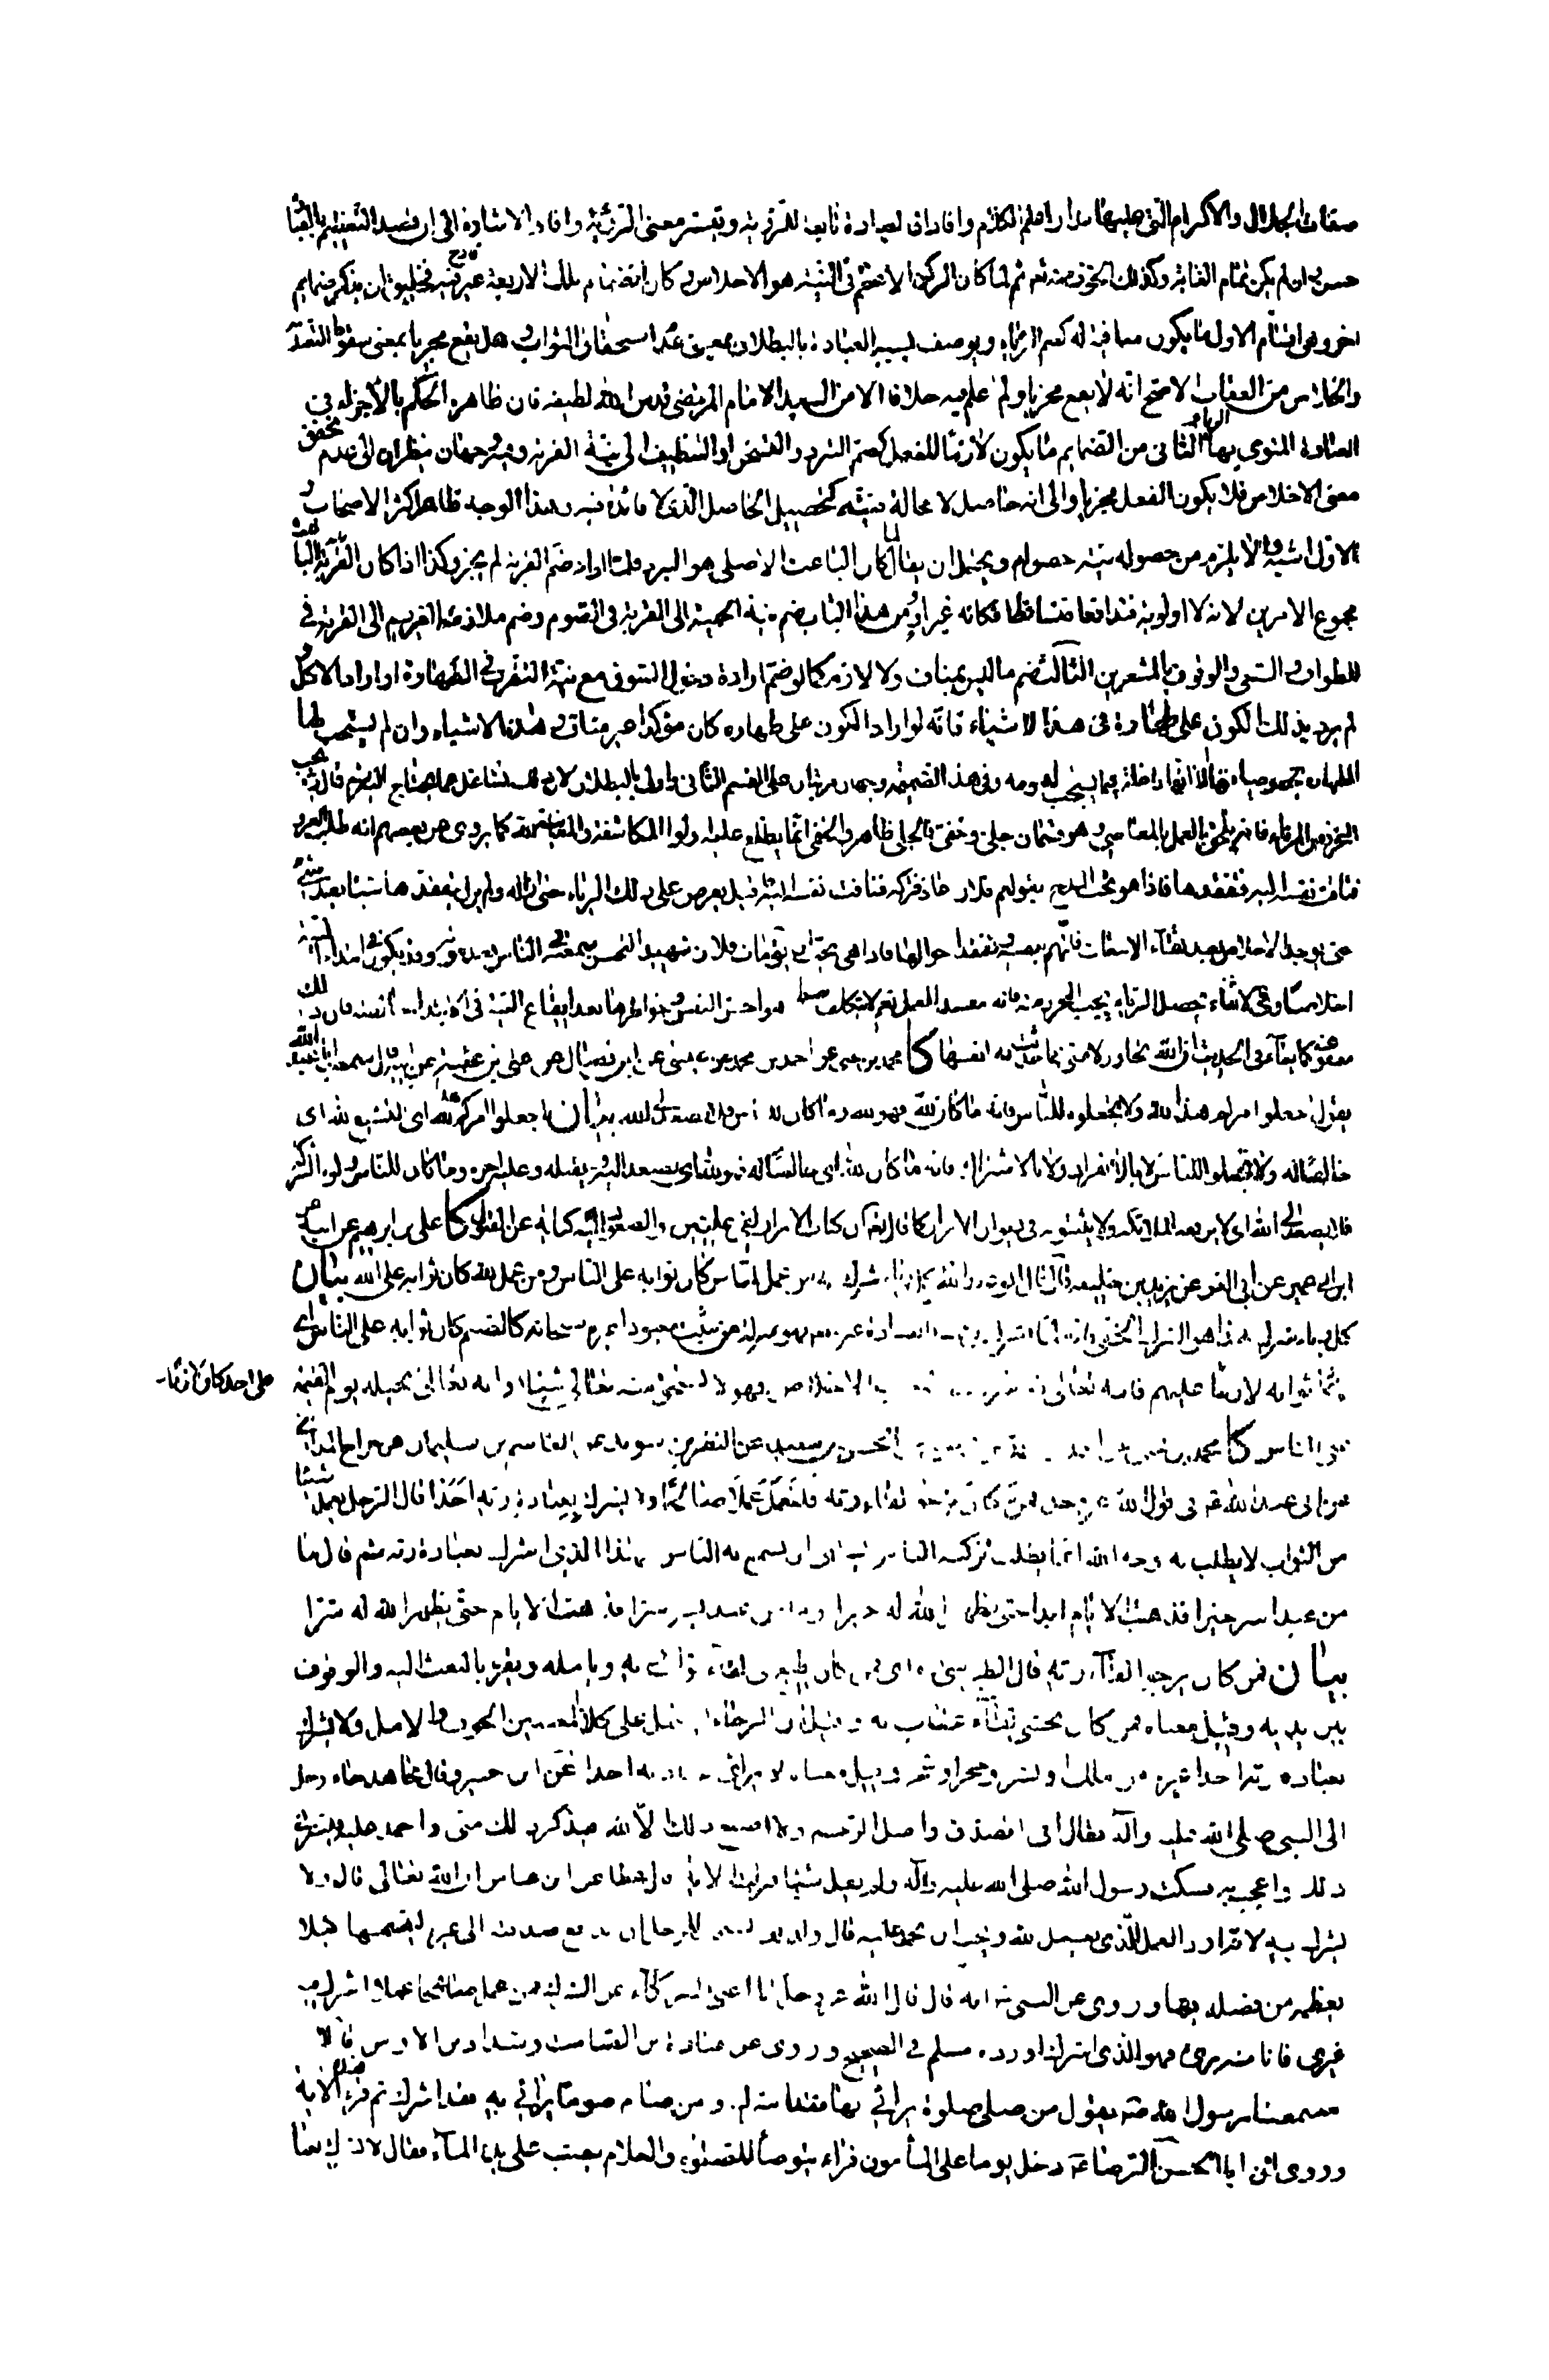 صفات الجلال والاكرام التى عليها مدار علم الكلام وافادات العبادة تابعة للقربة وتفسر معنى القربة وافاد الاشارة الى ان قصد التعظيم بالعبادة
حسن وان لم يكن تمام الغاية وكذلك الخوف منه تعالى ثم لما كان الركن الاعظم فى النية هو الاخلاص وكان انضمام تلك الاربعة غير قادح فيه فخليق ان يذكر ضمايم
اخر وهى اقسام الاول ما يكون منافية له كضم الرياء ويوصف بسببه العبادة بالبطلان بمعنى عدم استحقاق الثواب وهل يقع مجزيا بمعنى سقوط التعبد
والخلاص من العقاب الاصح انه لا يقع مجزيا ولم اعلم فيه خلافا الا من السيد الامام المرتضى قدس الله لطيفه فان ظاهره الحكم بالاجزاء فى
العبادة المنوى بها الرياء الثانى من الضمايم ما يكون لازما للفعل كضم التبرد والتسخن او التنظيف الى نية القربة وفيه وجهان ينظران الى عدم تحقق
معنى الاخلاص فلا يكون الفعل مجزيا والى انه حاصل لا محالة فنيته كتحصيل الحاصل الذى لا فائدة فيه وهذا الوجه ظاهر اكثر الاصحاب و
الاول اشبه ولا يلزم من حصوله نية حصوله ويحتمل ان يقال لما كان الباعث الاصلى هو التبرد فلما اراد ضم القربة لم يجز وكذا اذا كان الباعث
مجموع الامرين لانه لا اولوية فتدافعا فتساقطا فكانه غير ناو ومن هذا الباب ضم نية الحمية الى القربة فى الصوم وضم ملازمة الغريم الى القربة فى
الطواف والسعى والوقوف بالمشعرين الثالث ضم ما ليس بمناف ولا لازم كما لو ضم ارادة دخول السوق مع نية التقرب فى الطهارة او اراد الاكل و
لم يرد بذلك الكون على طهارة فى هذه الاشياء فانه لو اراد الكون على طهارة كان مؤكدا غير مناف وهذه الاشياء وان لم يستحب لها
الطهارة بخصوصياتها الا انها داخلة فيما يستحب لعمومه وفى هذه الضميمة وجهان مرتبان على القسم الثانى واولى بالبطلان لان ذلك تشاغل عما يحتاج اليه ثم قال يجب
التحرز من الرياء فانه يلحق العمل بالمعاصى وهو قسمان جلى وخفى فالجلى ظاهر والخفى انما يطلع عليه اولوا المكاشفة والمعاملة لله كما يروى عن بعضهم انه طلب الغزو
فتاقت نفسه اليه فتفقدها فاذا هو يحب المدح بقولهم فلان غاز فتركه فتاقت نفسه اليه فاقبل يعرض على ذلك الرياء حتى ازاله ولم يزل يتفقدها شيئا بعد شىء
حتى وجد الاخلاص بعد بقاء الانبعاث فاتهم نفسه وتفقد احوالها فاذا هى تحب ان يقال مات فلان شهيدا لتحسن سمعته فى الناس بعد موته وقد يكون فى ابتداء النية
اخلاصا وفى الاثناء تحصل الرياء فيجب التحرز منه فانه مفسد للعمل نعم لا يتكلف ضبط هواجس النفس وخواطرها بعد ايقاع النية فى الابتداء خالصة فان ذلك
معفو عنه كما جاء فى الحديث ان الله تجاوز لامتى عما حدثت به انفسها كا محمد بن يحيى عن احمد بن محمد بن عيسى عن ابن فضال عن على بن عقبة عن ابيه قال سمعت ابا عبد الله
يقول اجعلوا امركم هذا لله ولا تجعلوه للناس فانه ما كان لله فهو لله وما كان للناس فلا يصعد الى الله بيان اجعلوا امركم هذا لله اى التشيع لله اى
خالصا له ولا تجعلوا للناس لا بالانفراد ولا بالاشتراك فانه ما كان لله اى خالصا له فهو لله اى يصعد اليه ويقبله وعليه اجره وما كان للناس ولو بالشركة
فلا يصعد الى الله اى لا يرفعه الملائكة ولا يثبتونه فى ديوان الابرار كما قال تعالى ان كتاب الابرار لفى عليين والصعود اليه كناية عن القبول كا على بن ابرهيم عن ابيه عن
ابن ابى عمير عن ابى المغرا عن يزيد بن خليفة قال قال ابو عبد الله كل رياء شرك انه من عمل للناس كان ثوابه على الناس ومن عمل لله كان ثوابه على الله بيان
كل رياء شرك هذا هو الشرك الخفى فانه لما اشرك فى قصد العبادة غيره تعالى فهو بمنزلة من يثبت معبودا غيره سبحانه كالصنم كان ثوابه على الناس اى
لو كان ثوابه لازما على احد كان لازما عليهم فانه تعالى قد شرط فى الثواب الاخلاص فهو لا يستحق منه تعالى شيئا او انه تعالى يحيله يوم القيمة
على الناس كا محمد بن يحيى عن احمد بن محمد بن عيسى عن الحسين بن سعيد عن النضر بن سويد عن القاسم بن سليمان عن جراح المداينى
عن ابى عبد الله ع فى قول الله عز وجل فمن كان يرجو لقاء ربه فليعمل عملا صالحا ولا يشرك بعبادة ربه احدا قال الرجل يعمل شيئا
من الثواب لا يطلب به وجه الله انما يطلب تزكية الناس يشتهى ان يسمع به الناس فهذا الذى اشرك بعبادة ربه ثم قال ما
من عبد اسر خيرا فذهبت الايام ابدا حتى يظهر الله له خيرا وما من عبد يسر شرا فذهبت الايام حتى يظهر الله له شرا
بيان فمن كان يرجو لقاء ربه قال الطبرسى ره اى فمن كان يطمع فى لقاء ثواب ربه ويامله ويقر بالبعث اليه والوقوف
بين يديه وقيل معناه فمن كان يخشى لقاء عقاب ربه وقيل ان الرجاء يشتمل على كلا المعنيين الخوف والامل ولا يشرك
بعبادة ربه احدا غيره من ملك او بشر او حجر او شجر وقيل معناه لا يرائى عبادته احدا عن ابن جبير وقال مجاهد جاء رجل
الى النبى صلى الله عليه وآله فقال انى اتصدق واصل الرحم ولا اصنع ذلك الا لله فيذكر ذلك منى واحمد عليه فيسرنى
ذلك واعجب به فسكت رسول الله صلى الله عليه وآله ولم يقل شيئا فنزلت الاية قال عطا عن ابن عباس ان الله تعالى قال ولا
يشرك به لانه اراد العمل الذى يعمل لله ويحب ان يحمد عليه قال ولذلك يستحب للرجل ان يدفع صدقته الى غيره ليقسمها كيلا
يعظمه من يصله بها وروى عن النبى ص انه قال قال الله عز وجل انا اغنى الشركاء عن الشرك فمن عمل عملا اشرك فيه
غيرى فانا منه برىء فهو للذى اشرك اورده مسلم فى الصحيح وروى عن عبادة بن الصامت وشداد بن الاوس قالا
سمعنا رسول الله ص يقول من صلى صلوة يرائى بها فقد اشرك ومن صام صوما يرائى به فقد اشرك ثم قرء هذه الاية
وروى ان ابا الحسن الرضا ع دخل يوما على المأمون فراه يتوضأ للصلوة والغلام يصب على يده الماء فقال لا تشرك بعبادة
على احد كان لازما